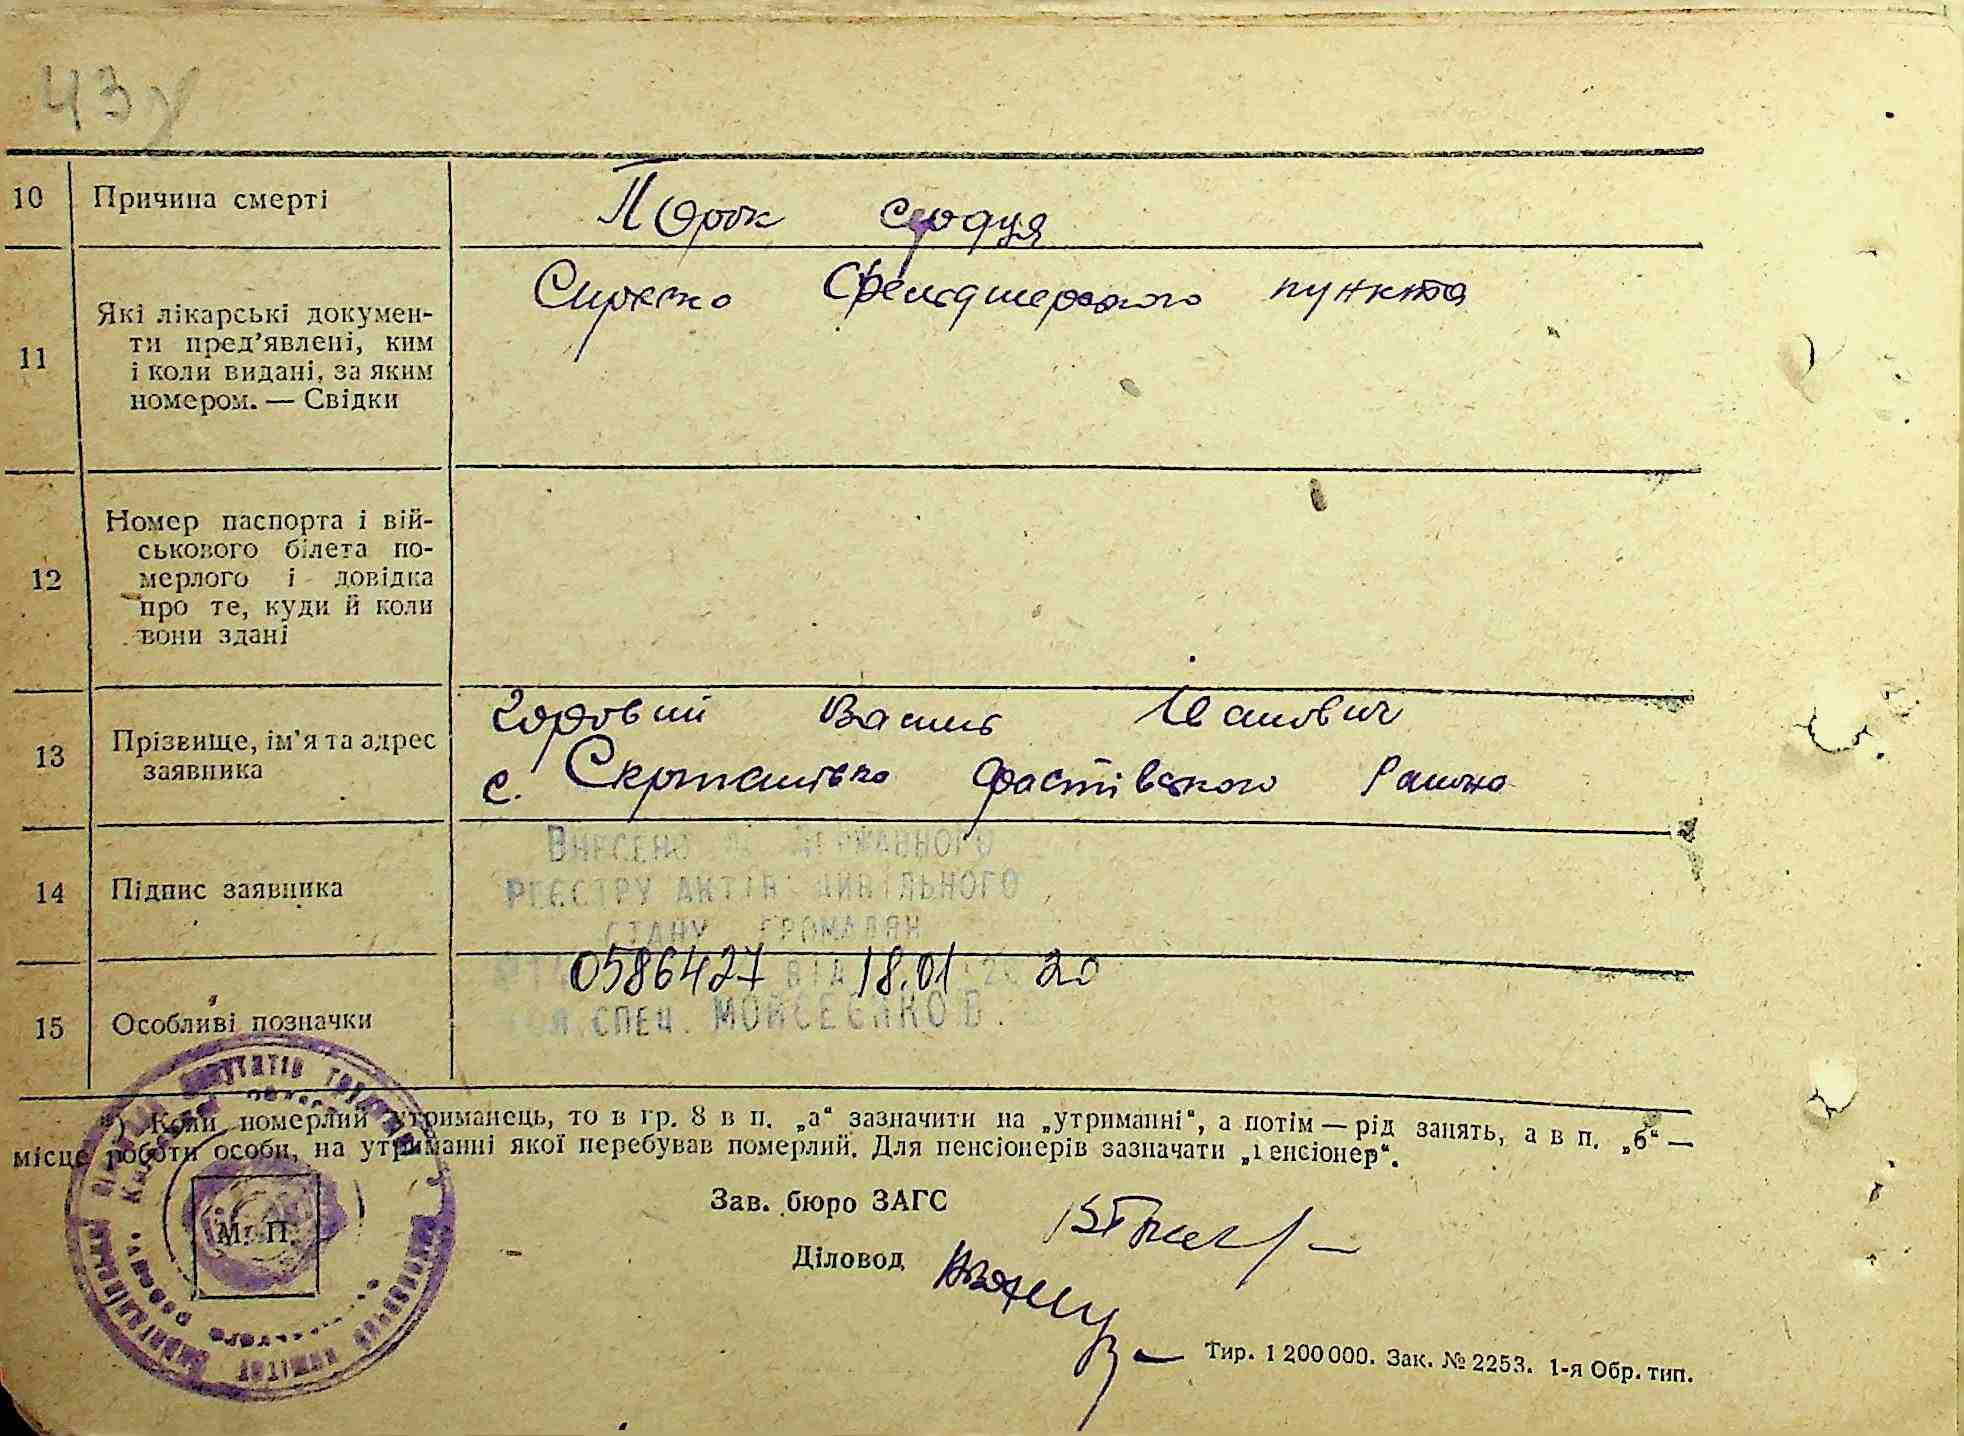 43
10 Причина смерті Порок сердця
11 Які лікарські докумен-
ти пред'явлені, ким
і коли видані, за яким
номером. — Свідки
фельдшерского пункта
12 Номер паспорта і вій-
ськового білета по-
мерлого і довідка
про те, куди й коли
вони здані
13 Прізвище, ім'я та адрес
заявника
Горовий Василь Іванович
с. Фастівського Района
14 Підпис заявника
Внесено до державного
реєстру актів цивільного
стану громадян
0586427 від 18.01 2020
15 Особливі позначки
спец. Мойсеєнко В.
*) Коли померлий утриманець, то в гр. 8 в п. „а“ зазначити на „утриманні“, а потім — рід занять, а в п. „б“ —
місце роботи особи, на утриманні якої перебував померлий. Для пенсіонерів зазначати „пенсіонер“.
Зав. бюро ЗАГС
Діловод
М. П.
Тир. 1 200 000. Зак. № 2253. 1-я Обр. тип.